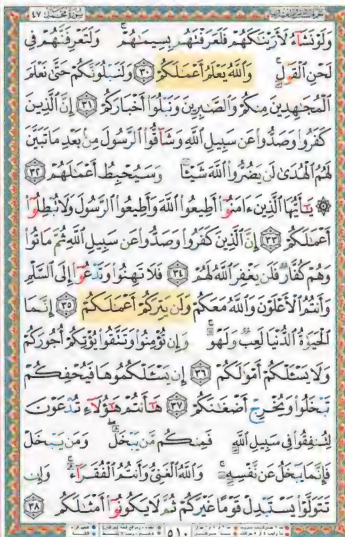 سورة محمد ٤٧
وَلَوْ نَشَآءُ لَأَرَيْنَٰكَهُمْ فَلَعَرَفْتَهُم بِسِيمَٰهُمْ ۚ وَلَتَعْرِفَنَّهُمْ فِى
لَحْنِ ٱلْقَوْلِ ۚ وَٱللَّهُ يَعْلَمُ أَعْمَٰلَكُمْ ﴿٣٠﴾ وَلَنَبْلُوَنَّكُمْ حَتَّىٰ نَعْلَمَ
ٱلْمُجَٰهِدِينَ مِنكُمْ وَٱلصَّٰبِرِينَ وَنَبْلُوَا۟ أَخْبَارَكُمْ ﴿٣١﴾ إِنَّ ٱلَّذِينَ
كَفَرُوا۟ وَصَدُّوا۟ عَن سَبِيلِ ٱللَّهِ وَشَآقُّوا۟ ٱلرَّسُولَ مِنۢ بَعْدِ مَا تَبَيَّنَ
لَهُمُ ٱلْهُدَىٰ لَن يَضُرُّوا۟ ٱللَّهَ شَيْـًٔا وَسَيُحْبِطُ أَعْمَٰلَهُمْ ﴿٣٢﴾
۞ يَٰٓأَيُّهَا ٱلَّذِينَ ءَامَنُوٓا۟ أَطِيعُوا۟ ٱللَّهَ وَأَطِيعُوا۟ ٱلرَّسُولَ وَلَا تُبْطِلُوٓا۟
أَعْمَٰلَكُمْ ﴿٣٣﴾ إِنَّ ٱلَّذِينَ كَفَرُوا۟ وَصَدُّوا۟ عَن سَبِيلِ ٱللَّهِ ثُمَّ مَاتُوا۟
وَهُمْ كُفَّارٌ فَلَن يَغْفِرَ ٱللَّهُ لَهُمْ ﴿٣٤﴾ فَلَا تَهِنُوا۟ وَتَدْعُوٓا۟ إِلَى ٱلسَّلْمِ
وَأَنتُمُ ٱلْأَعْلَوْنَ وَٱللَّهُ مَعَكُمْ وَلَن يَتِرَكُمْ أَعْمَٰلَكُمْ ﴿٣٥﴾ إِنَّمَا
ٱلْحَيَوٰةُ ٱلدُّنْيَا لَعِبٌ وَلَهْوٌ ۚ وَإِن تُؤْمِنُوا۟ وَتَتَّقُوا۟ يُؤْتِكُمْ أُجُورَكُمْ
وَلَا يَسْـَٔلْكُمْ أَمْوَٰلَكُمْ ﴿٣٦﴾ إِن يَسْـَٔلْكُمُوهَا فَيُحْفِكُمْ
تَبْخَلُوا۟ وَيُخْرِجْ أَضْغَٰنَكُمْ ﴿٣٧﴾ هَٰٓأَنتُمْ هَٰٓؤُلَآءِ تُدْعَوْنَ
لِتُنفِقُوا۟ فِى سَبِيلِ ٱللَّهِ فَمِنكُم مَّن يَبْخَلُ ۖ وَمَن يَبْخَلْ
فَإِنَّمَا يَبْخَلُ عَن نَّفْسِهِۦ ۚ وَٱللَّهُ ٱلْغَنِىُّ وَأَنتُمُ ٱلْفُقَرَآءُ ۚ وَإِن
تَتَوَلَّوْا۟ يَسْتَبْدِلْ قَوْمًا غَيْرَكُمْ ثُمَّ لَا يَكُونُوٓا۟ أَمْثَٰلَكُم ﴿٣٨﴾
٥١٠